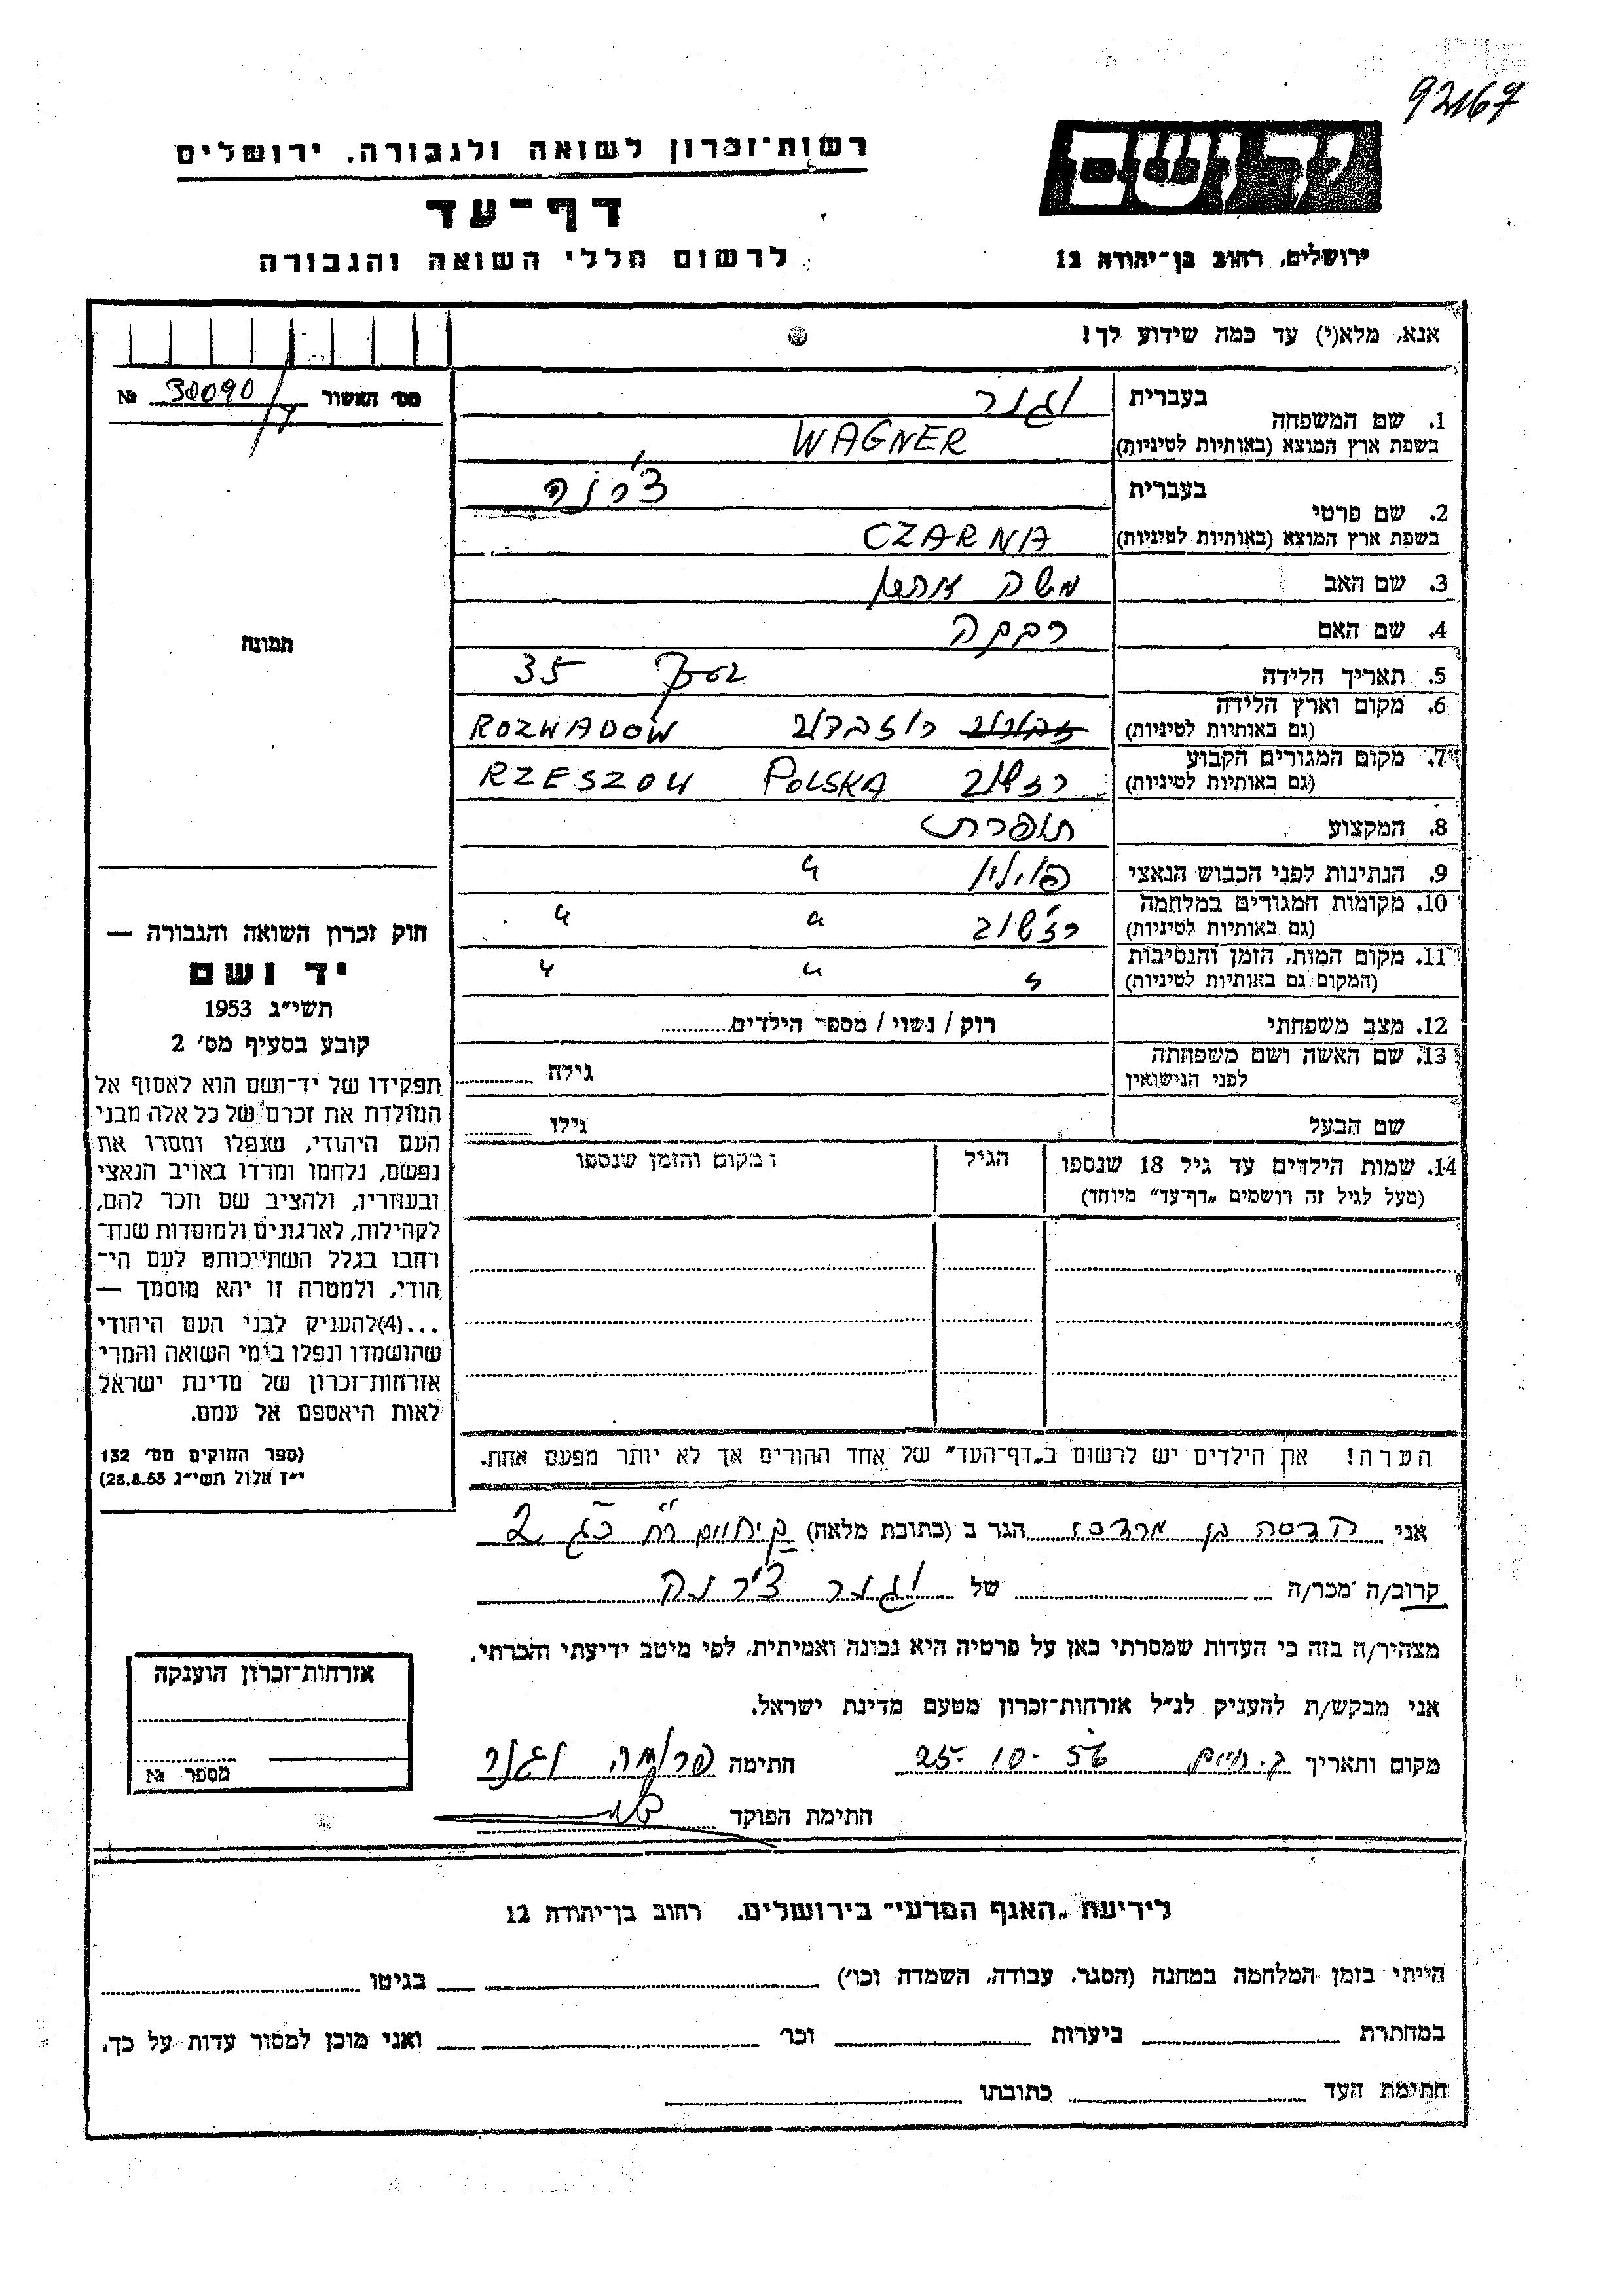 92167
רשות־זכרון לשואה ולגבורה, ירושלים
יד ושם
דף־עד
לרשום חללי השואה והגבורה
ירושלים, רחוב בן־יהודה 12
אנא, מלא(י) עד כמה שידוע לך!
מס׳ האשור 30090 №
1. שם המשפחה בעברית וגנר
בשפת ארץ המוצא (באותיות לטיניות) WAGNER
2. שם פרטי בעברית צ׳רנה
בשפת ארץ המוצא (באותיות לטיניות) CZARNA
3. שם האב משה
4. שם האם רבקה
5. תאריך הלידה 35
6. מקום וארץ הלידה (גם באותיות לטיניות) רוזבדוב ROZWADOW
7. מקום המגורים הקבוע (גם באותיות לטיניות) רזשוב POLSKA RZESZOW
8. המקצוע תופרת
9. הנתינות לפני הכבוש הנאצי פולין "
10. מקומות המגורים במלחמה (גם באותיות לטיניות) רזשוב " "
11. מקום המות, הזמן והנסיבות (המקום גם באותיות לטיניות) " " "
12. מצב משפחתי רוק / נשוי / מספר הילדים
13. שם האשה ושם משפחתה לפני הנישואין גילה
שם הבעל גילו
14. שמות הילדים עד גיל 18 שנספו (מעל לגיל זה רושמים „דף־עד” מיוחד) הגיל ומקום והזמן שנספו
תמונה
חוק זכרון השואה והגבורה —
יד ושם
תשי״ג 1953
קובע בסעיף מס׳ 2
תפקידו של יד־ושם הוא לאסוף אל
המולדת את זכרם של כל אלה מבני
העם היהודי, שנפלו ומסרו את
נפשם, נלחמו ומרדו באויב הנאצי
ובעוזריו, ולהציב שם וזכר להם,
לקהילות, לארגונים ולמוסדות שנח־
רחבו בגלל השתייכותם לעם הי־
הודי, ולמטרה זו יהא מוסמך —
...(4)להעניק לבני העם היהודי
שהושמדו ונפלו בימי השואה והמרי
אזרחות־זכרון של מדינת ישראל
לאות היאספם אל עמם.
(ספר החוקים מס׳ 132
י״ז אלול תשי״ג 28.8.53)
הערה! את הילדים יש לרשום ב„דף־העד” של אחד ההורים אך לא יותר מפעם אחת.
אני הדסה בן מרדכי הגר ב (כתובת מלאה) 2
קרוב/ה מכר/ה של וגנר צ׳רנה
מצהיר/ה בזה כי העדות שמסרתי כאן על פרטיה היא נכונה ואמיתית, לפי מיטב ידיעתי והכרתי.
אני מבקש/ת להעניק לנ״ל אזרחות־זכרון מטעם מדינת ישראל.
מקום ותאריך 25-10-56 חתימה פרומה וגנר
חתימת הפוקד
אזרחות־זכרון הוענקה
מספר №
לידיעת „האגף המדעי” בירושלים, רחוב בן־יהודה 12
הייתי בזמן המלחמה במחנה (הסגר, עבודה, השמדה וכו׳) בגיטו
במחתרת ביערות וכו׳ ואני מוכן למסור עדות על כך.
חתימת העד כתובתו